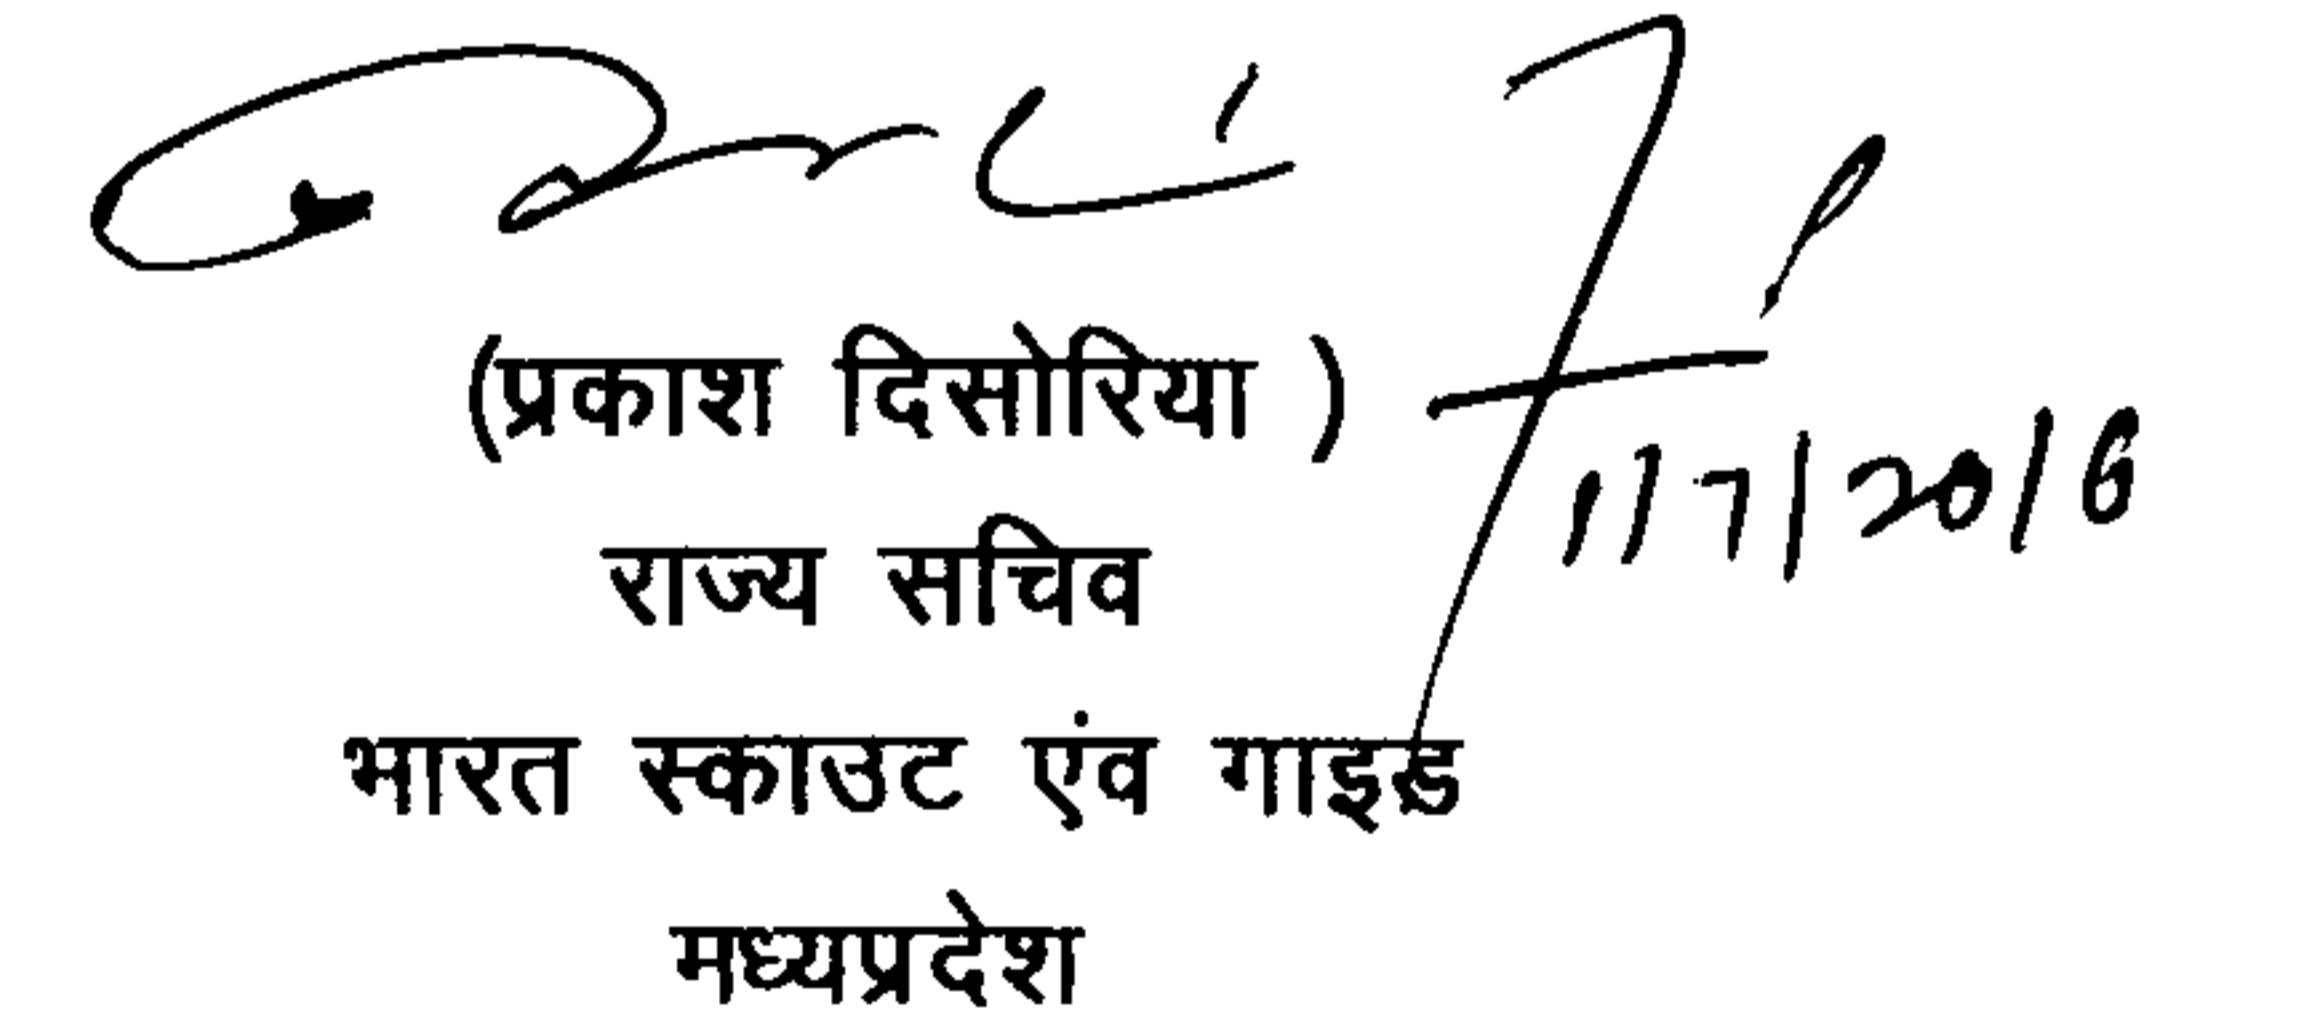 (प्रकाश दिसोरिया )
1/7/2016
राज्य सचिव
भारत स्काउट एंव गाइड
मध्यप्रदेश